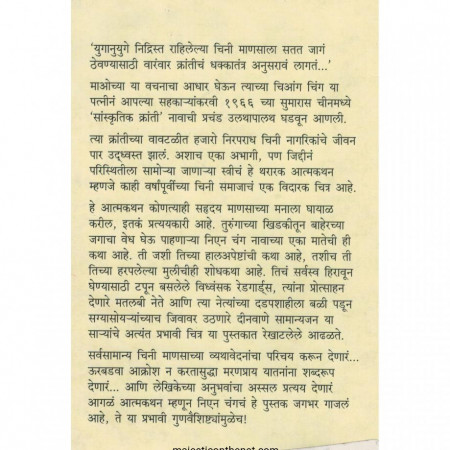 ‘युगानुयुगे निद्रिस्त राहिलेल्या चिनी माणसाला सतत जागं
ठेवण्यासाठी वारंवार क्रांतीचं धक्कातंत्र अनुसरावं लागतं...’
माओच्या या वचनाचा आधार घेऊन त्याच्या चिआंग चिंग या
पत्नीनं आपल्या सहकाऱ्यांकरवी १९६६ च्या सुमारास चीनमध्ये
‘सांस्कृतिक क्रांती’ नावाची प्रचंड उलथापालथ घडवून आणली.
त्या क्रांतीच्या वावटळीत हजारो निरपराध चिनी नागरिकांचे जीवन
पार उद्ध्वस्त झालं. अशाच एका अभागी, पण जिद्दीनं
परिस्थितीला सामोऱ्या जाणाऱ्या स्त्रीचं हे थरारक आत्मकथन
म्हणजे काही वर्षांपूर्वीच्या चिनी समाजाचं एक विदारक चित्र आहे.
हे आत्मकथन कोणत्याही सहृदय माणसाच्या मनाला घायाळ
करील, इतकं प्रत्ययकारी आहे. तुरुंगाच्या खिडकीतून बाहेरच्या
जगाचा वेध घेऊ पाहणाऱ्या निएन चंग नावाच्या एका मातेची ही
कथा आहे. ती जशी तिच्या हालअपेष्टांची कथा आहे, तशीच ती
तिच्या हरपलेल्या मुलीचीही शोधकथा आहे. तिचं सर्वस्व हिरावून
घेण्यासाठी टपून बसलेले विध्वंसक रेडगार्ड्स, त्यांना प्रोत्साहन
देणारे मतलबी नेते आणि त्या नेत्यांच्या दडपशाहीला बळी पडून
सग्यासोयऱ्यांच्याच जिवावर उठणारे दीनवाणे सामान्यजन या
साऱ्यांचे अत्यंत प्रभावी चित्र या पुस्तकात रेखाटलेले आढळते.
सर्वसामान्य चिनी माणसाच्या व्यथावेदनांचा परिचय करून देणारं...
ऊरबडवा आक्रोश न करतासुद्धा मरणप्राय यातनांना शब्दरूप
देणारं... आणि लेखिकेच्या अनुभवांचा अस्सल प्रत्यय देणारं
आगळं आत्मकथन म्हणून निएन चंगचं हे पुस्तक जगभर गाजलं
आहे, ते या प्रभावी गुणवैशिष्ट्यांमुळेच!
majesticonthenet.com